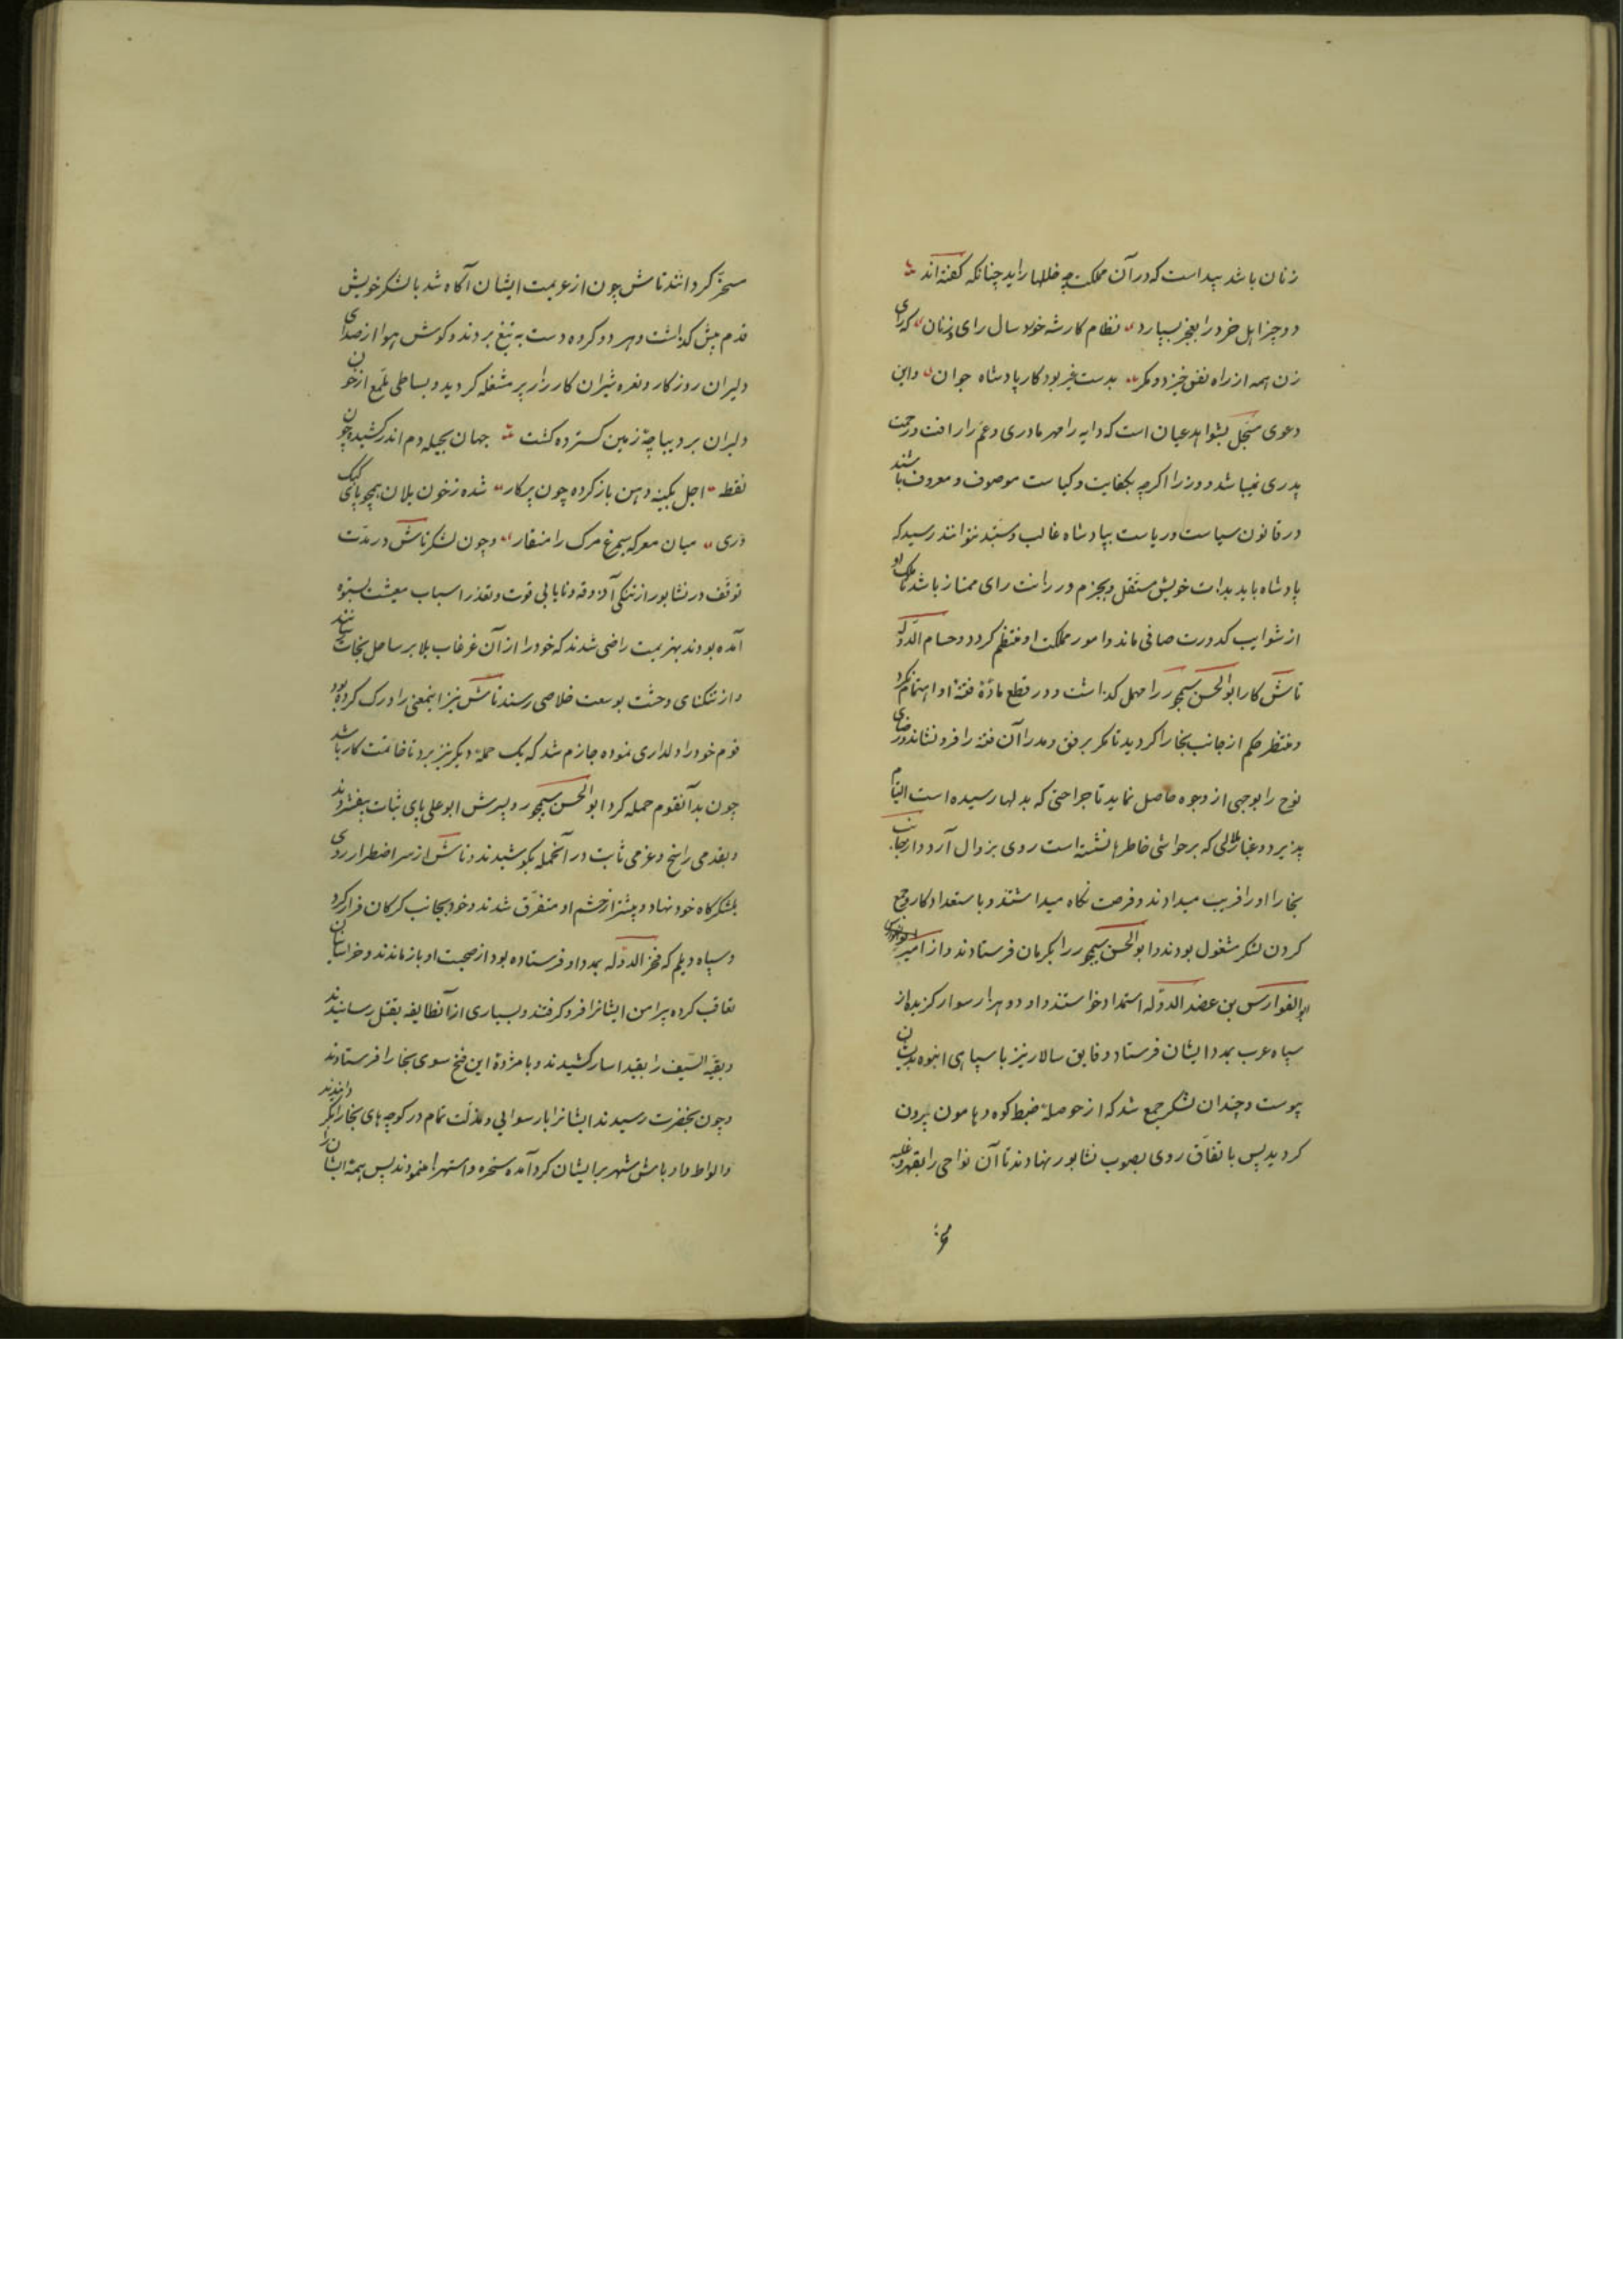 زنان باشد پیداست که در آن مملکت چه خللها زاید چنانکه گفته‌اند
دو چیز اهل خرد را بعجز بسپارد نظام کار شه خورد سال رای زنان که رای
زن همه از راه نفس خیزد و مکر بدست غیر بود کار پادشاه جوان و این
دعوی مسجل بشواهد عیان است که دایه را مهر مادری و عم را رافت و رحمت
پدری نمیباشد و وزرا اگرچه بکفایت و کیاست موصوف و معروف باشند
در قانون سیاست و ریاست بپادشاه غالب و مستبد نتوانند رسید که
پادشاه باید بذات خویش مستقل و بحزم و رزانت رای ممتاز باشد تا ملک او
از شوایب کدورت صافی ماند و امور مملکت او منتظم گردد و حسام الدوله
تاش کار ابوالحسن سیمجور را مهمل گذاشت و در قطع مادهٔ فتنهٔ او اهتمام نکرد
و منتظر حکم از جانب بخارا گردید تا مگر برفق و مدارا آن فتنه را فرو نشاند و رضای
نوح را بوجهی از وجوه حاصل نماید تا جراحتی که بدلها رسیده است التیام
پذیرد و غبار ملالی که بر حواشی خاطرها نشسته است روی بزوال آرد و از جانب
بخارا او را فریب میدادند و فرصت نگاه میداشتند و باستعداد کار و جمع
کردن لشکر مشغول بودند و ابوالحسن سیمجور را بکرمان فرستادند و از امیر
ابوالفوارس بن عضد الدوله استمداد خواستند و او دو هزار سوار گزیده از
سپاه عرب بمدد ایشان فرستاد و فایق سالار نیز با سپاهی انبوه بدیشان
پیوست و چندان لشکر جمع شد که از حوصلهٔ ضبط کوه و هامون بیرون
گردید پس باتفاق روی بصوب نشابور نهادند تا آن نواحی را بقهر و غلبه
مسخر گردانند تاش چون از عزیمت ایشان آگاه شد با لشکر خویش
قدم پیش گذاشت و هر دو گروه دست به تیغ بردند و گوش هوا از صدای
دلیران روزگار و نعره شیران کارزار پر مشغله گردید و بساطی ملمع از خون
دلیران بر دیباچهٔ زمین گسترده گشت جهان بحیله دم اندر کشیده چون
نقطه اجل بکینه دهن باز کرده چون پرکار شده ز خون یلان همچو پای کبک
دری میان معرکه سیمرغ مرگ را منقار و چون لشکر تاش در مدت
توقف در نشابور از تنگی آذوقه و نایابی قوت و تعذر اسباب معیشت بستوه
آمده بودند بهزیمت راضی شدند که خود را از آن غرقاب بلا بر ساحل نجات
و از تنگنای وحشت بوسعت خلاصی رسند تاش نیز اینمعنی را درک کرده بود
قوم خود را دلداری نموده جازم شد که یک حملهٔ دیگر نیز برد تا خاتمت کار باشد
چون بدآنقوم حمله کرد ابوالحسن سیمجور و پسرش ابوعلی پای ثبات بیفشردند
و بقدمی راسخ و عزمی ثابت در آنحمله بکوشیدند و تاش از سر اضطرار روی
بلشکرگاه خود نهاد و بیشتر از حشم او متفرق شدند و خود بجانب گرگان فرار کرد
و سپاه دیلم که فخر الدوله بمدد او فرستاده بود از صحبت او بازماندند و خراسانیان
تعاقب کرده پیرامن ایشانرا فرو گرفتند و بسیاری از آنطایفه بقتل رسانیدند
و بقیة السیف را بقید اسار کشیدند و با مژدهٔ این فتح سوی بخارا فرستادند
و چون بحضرت رسیدند ایشانرا با رسوایی و مذلت تمام در کوچه‌های بخارا بگردانیدند
و الواط و اوباش شهر بر ایشان گرد آمده سخره و استهزا مینمودند پس همهٔ ایشان را